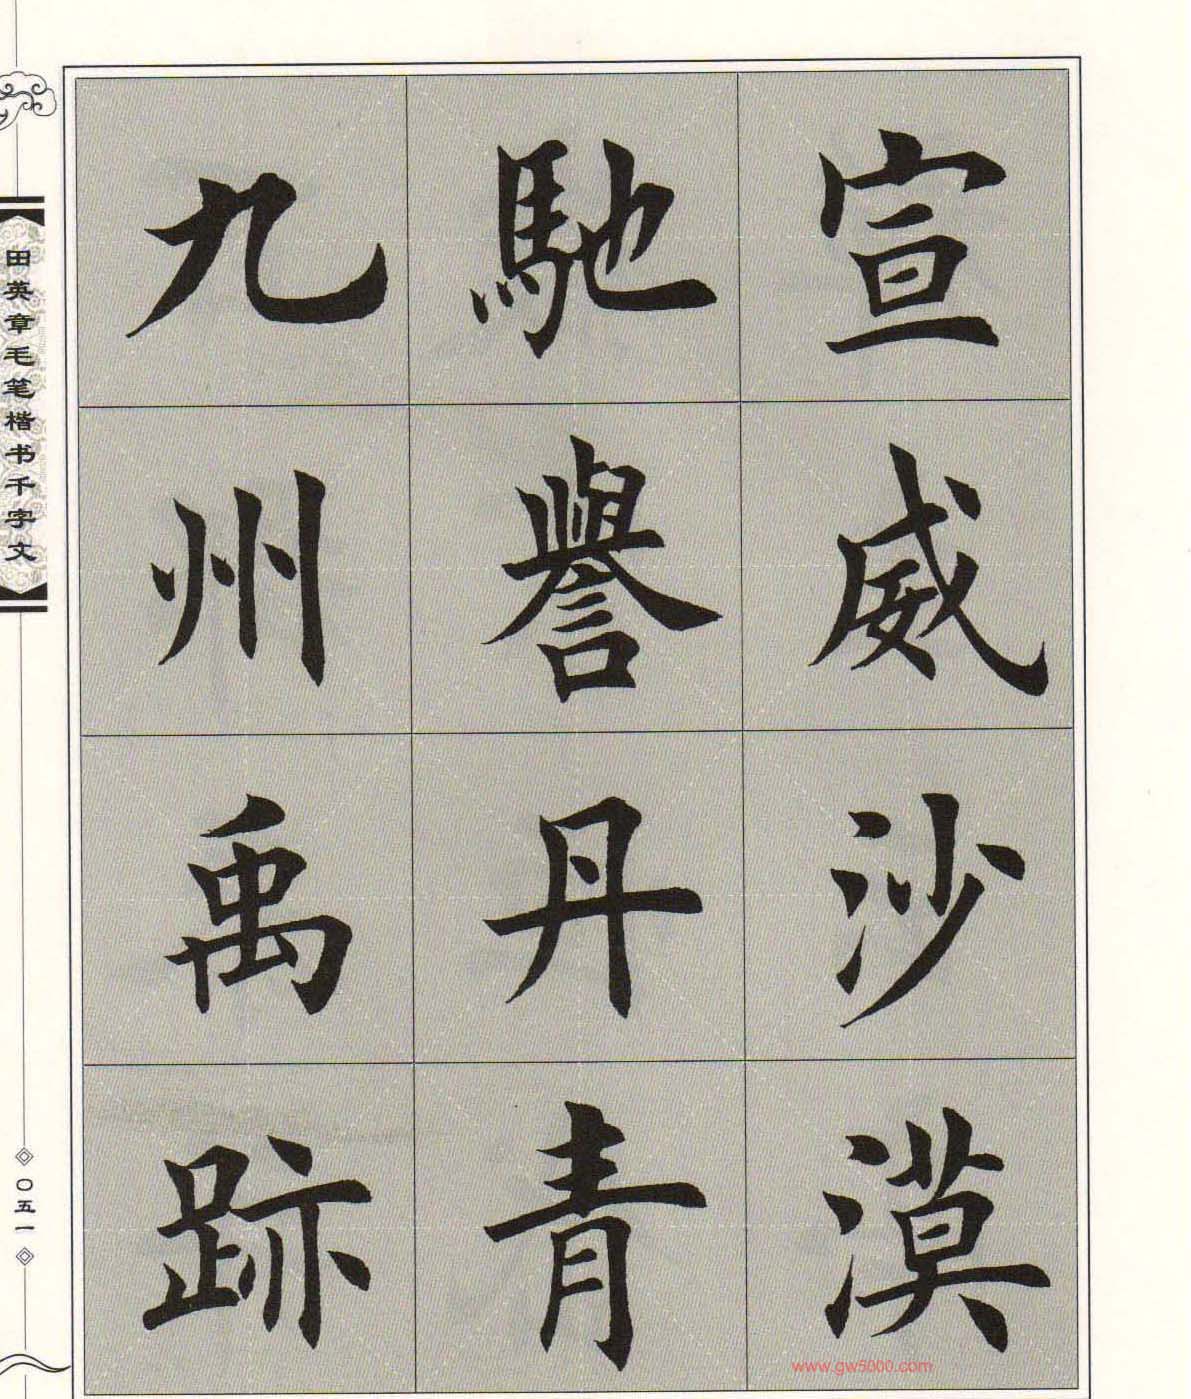 宣威沙漠
馳譽丹青
九州禹跡
田英章毛笔楷书千字文
〇五一
www.gw5000.com